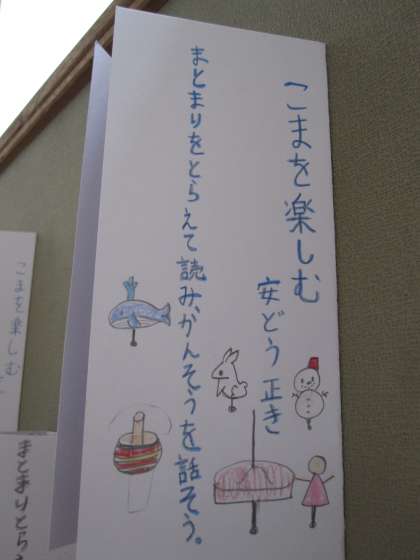 こまを楽しむ
安どう 正き
まとまりをとらえて読み、かんそうを話そう。
こまを楽しむ
まとまりとらえ